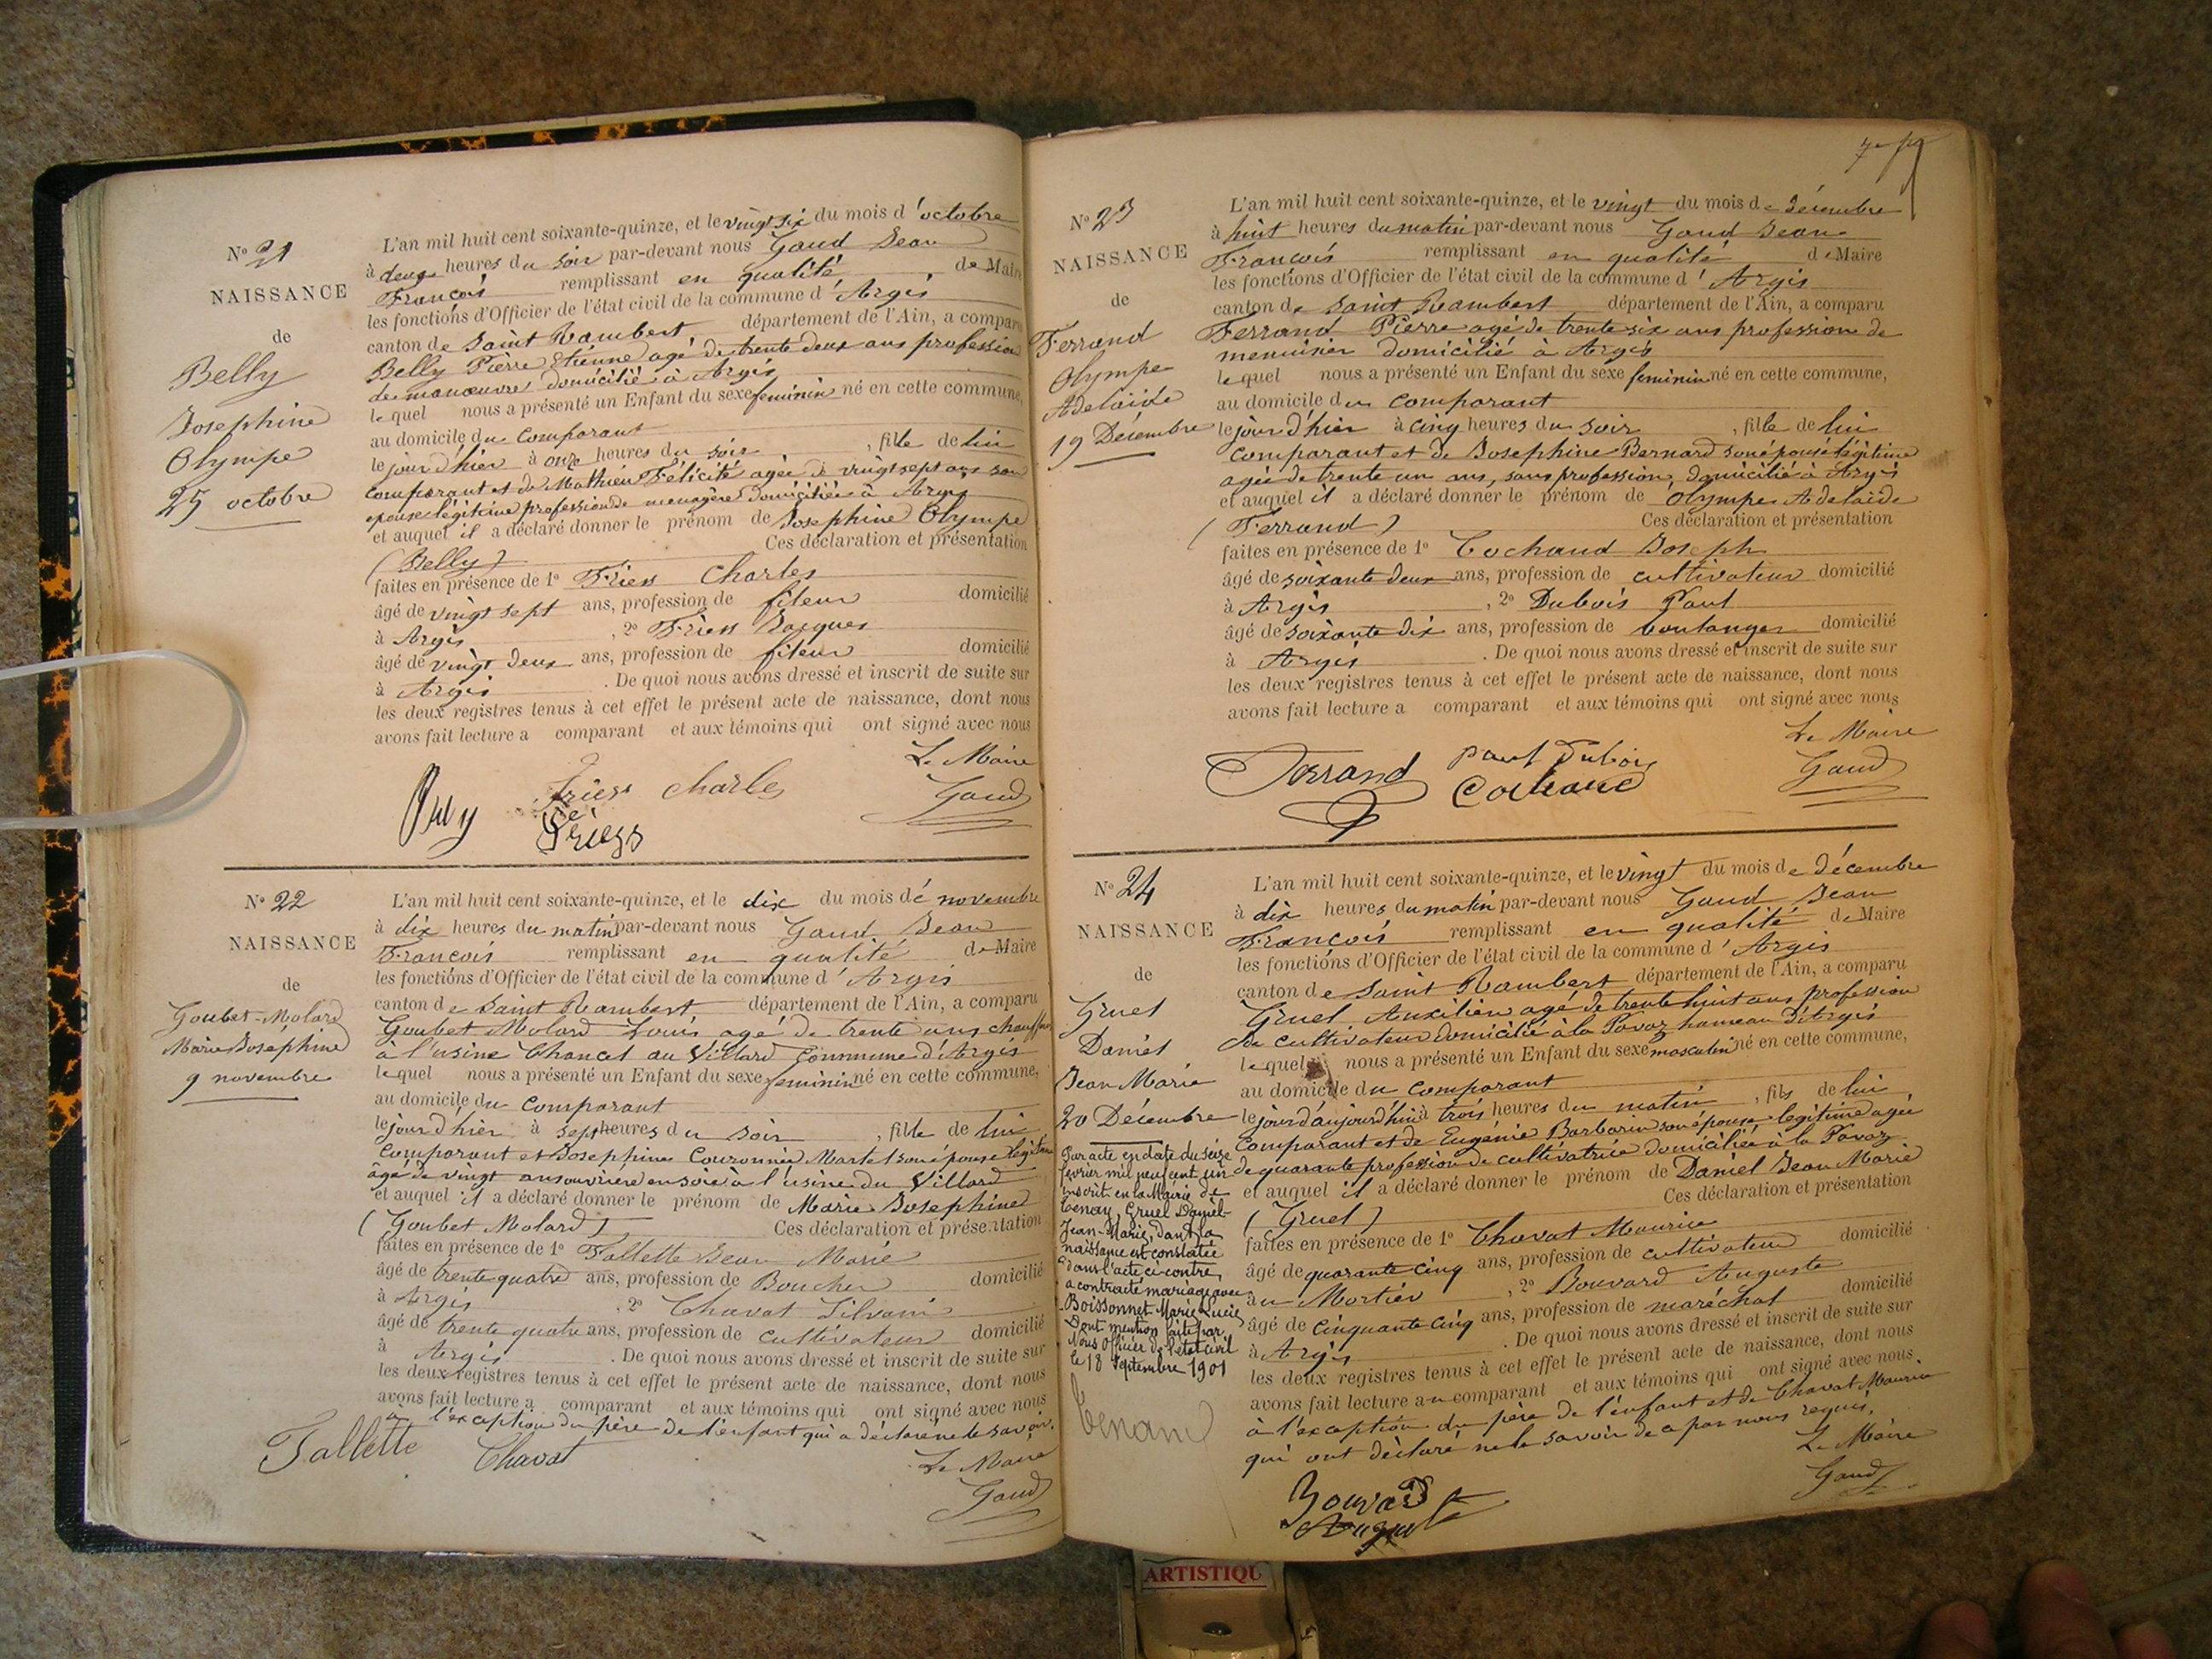 N° 21
NAISSANCE
de
Belly
Josephine
Olympe
25 octobre
L'an mil huit cent soixante-quinze, et le vingt six du mois d'octobre
à deux heures du soir par-devant nous Gaud Jean
François remplissant en qualité de Maire
les fonctions d'Officier de l'état civil de la commune d'Argis
canton de Saint Rambert département de l'Ain, a comparu
Belly Pierre Etienne agé de trente deux ans profession
de manœuvre domicilié à Argis
lequel nous a présenté un Enfant du sexe feminin né en cette commune,
au domicile du comparant
le jour d'hier à onze heures du soir, fille de lui
comparant et de Mathieu Félicité agée de vingt sept ans son
epouse légitime profession de menagère domiciliée à Argis
et auquel il a déclaré donner le prénom de Josephine Olympe
(Belly) Ces déclaration et présentation
faites en présence de 1° Friess Charles
âgé de vingt sept ans, profession de fileur domicilié
à Argis, 2° Friess Jacques
âgé de vingt deux ans, profession de fileur domicilié
à Argis. De quoi nous avons dressé et inscrit de suite sur
les deux registres tenus à cet effet le présent acte de naissance, dont nous
avons fait lecture a comparant et aux témoins qui ont signé avec nous
Le Maire
Friess Charles
Gaud
Friess
N° 22
NAISSANCE
de
Goubet-Molard
Marie Joséphine
9 novembre
L'an mil huit cent soixante-quinze, et le dix du mois de novembre
à dix heures du matin par-devant nous Gaud Jean
François remplissant en qualité de Maire
les fonctions d'Officier de l'état civil de la commune d'Argis
canton de Saint Rambert département de l'Ain, a comparu
Goubet Molard Louis agé de trente ans chauffeur
à l'usine Chancel au Villard commune d'Argis
lequel nous a présenté un Enfant du sexe feminin né en cette commune,
au domicile du comparant
le jour d'hier à sept heures du soir, fille de lui
comparant et Josephine Couronnée Martel son épouse légitime
âgé de vingt ans ouvrière en soie à l'usine du Villard
et auquel il a déclaré donner le prénom de Marie Josephine
(Goubet Molard) Ces déclaration et présentation
faites en présence de 1° Tallette Jean Marie
âgé de trente quatre ans, profession de Boucher domicilié
à Argis, 2° Chavat Silvani
âgé de trente quatre ans, profession de cultivateur domicilié
à Argis. De quoi nous avons dressé et inscrit de suite sur
les deux registres tenus à cet effet le présent acte de naissance, dont nous
avons fait lecture a comparant et aux témoins qui ont signé avec nous
à l'exception du père de l'enfant qui a déclaré ne le savoir.
Tallette Chavat
Le Maire
Gaud
7e
N° 23
NAISSANCE
de
Ferrand
Olympe
Adelaide
19 Décembre
L'an mil huit cent soixante-quinze, et le vingt du mois de décembre
à huit heures du matin par-devant nous Gaud Jean
François remplissant en qualité de Maire
les fonctions d'Officier de l'état civil de la commune d'Argis
canton de Saint Rambert département de l'Ain, a comparu
Ferrand Pierre agé de trente six ans profession de
menuisier domicilié à Argis
lequel nous a présenté un Enfant du sexe feminin né en cette commune,
au domicile du comparant
le jour d'hier à cinq heures du soir, fille de lui
comparant et de Josephine Bernard son épouse légitime
agée de trente un ans, sans profession, domicilié à Argis
et auquel il a déclaré donner le prénom de Olympe Adelaide
(Ferrand) Ces déclaration et présentation
faites en présence de 1° Cochand Joseph
âgé de soixante deux ans, profession de cultivateur domicilié
à Argis, 2° Dubois Paul
âgé de soixante dix ans, profession de boulanger domicilié
à Argis. De quoi nous avons dressé et inscrit de suite sur
les deux registres tenus à cet effet le présent acte de naissance, dont nous
avons fait lecture a comparant et aux témoins qui ont signé avec nous
Le Maire
Ferrand paul Dubois
Cochand
Gaud
N° 24
NAISSANCE
de
Gruel
Daniel
Jean Marie
20 Décembre
Par acte en date du seize
février mil neuf cent un
inscrit en la Mairie de
Tenay, Gruel Daniel-
Jean-Marie, dont la
naissance est constatée
dans l'acte ci-contre,
a contracté mariage avec
Boissonnet Marie Lucie
Dont mention faite par
Nous Officier de l'état civil
le 18 Septembre 1901
L'an mil huit cent soixante-quinze, et le vingt du mois de décembre
à dix heures du matin par-devant nous Gaud Jean
François remplissant en qualité de Maire
les fonctions d'Officier de l'état civil de la commune d'Argis
canton de Saint Rambert département de l'Ain, a comparu
Gruel Auxilien agé de trente huit ans profession
de cultivateur domicilié à la Pavaz hameau d'Argis
lequel nous a présenté un Enfant du sexe masculin né en cette commune,
au domicile du comparant
le jour d'aujourd'hui à trois heures du matin, fils de lui
comparant et de Eugénie Barbarin son épouse legitime agée
de quarante profession de cultivatrice domiciliée à la Pavaz
et auquel il a déclaré donner le prénom de Daniel Jean Marie
(Gruel) Ces déclaration et présentation
faites en présence de 1° Chavat Maurice
âgé de quarante cinq ans, profession de cultivateur domicilié
au Mortier, 2° Bouvard Auguste
âgé de cinquante cinq ans, profession de maréchal domicilié
à Argis. De quoi nous avons dressé et inscrit de suite sur
les deux registres tenus à cet effet le présent acte de naissance, dont nous
avons fait lecture au comparant et aux témoins qui ont signé avec nous
à l'exception du père de l'enfant et de Chavat Maurice
qui ont déclaré ne le savoir de ce par nous requis.
Le Maire
Gaud
Bouvard
August
ARTISTIQU